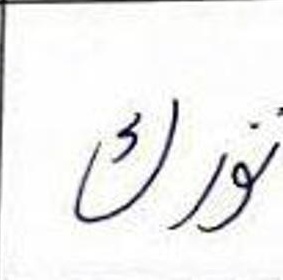 نورك